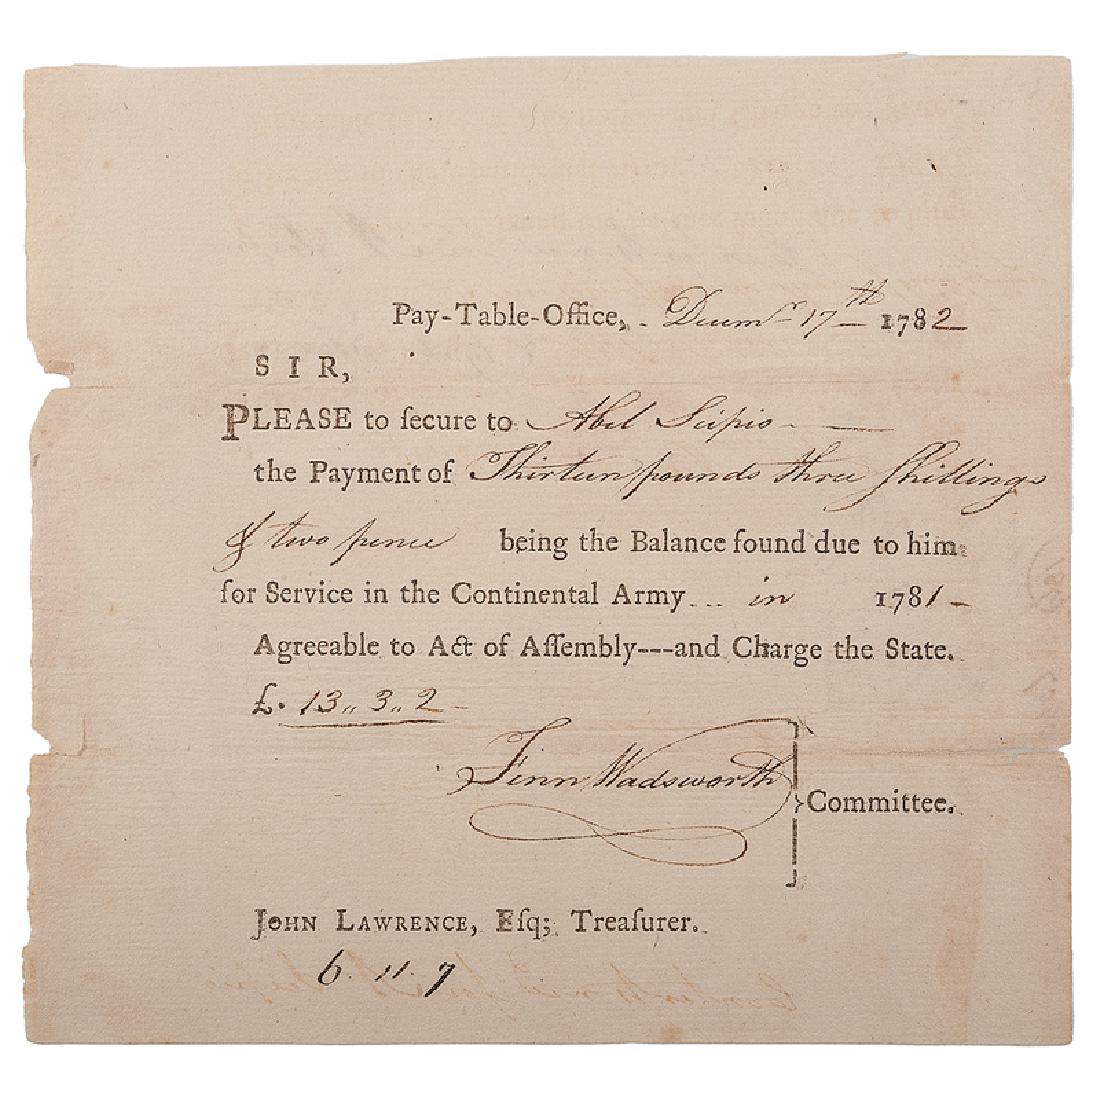 Pay-Table-Office, Decemr 17th 1782
SIR,
PLEASE to ſecure to Abel Scipio
the Payment of Thirteen pounds three Shillings
& two pence being the Balance found due to him
for Service in the Continental Army... in 1781-
Agreeable to Act of Aſſembly---and Charge the State.
£. 13,, 3,, 2
Fenn Wadsworth
} Committee.
JOHN LAWRENCE, Eſq; Treaſurer.
6. 11. 7